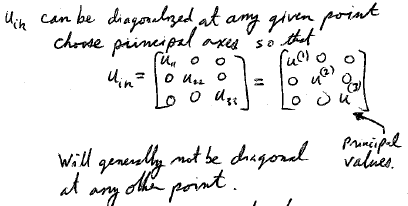 u_ik can be diagonalized at any given point
choose principal axes so that
u_ik = [u_11 0 0; 0 u_22 0; 0 0 u_33] = [u^(1) 0 0; 0 u^(2) 0; 0 0 u^(3)]
principal
values.
Will generally not be diagonal
at any other point.